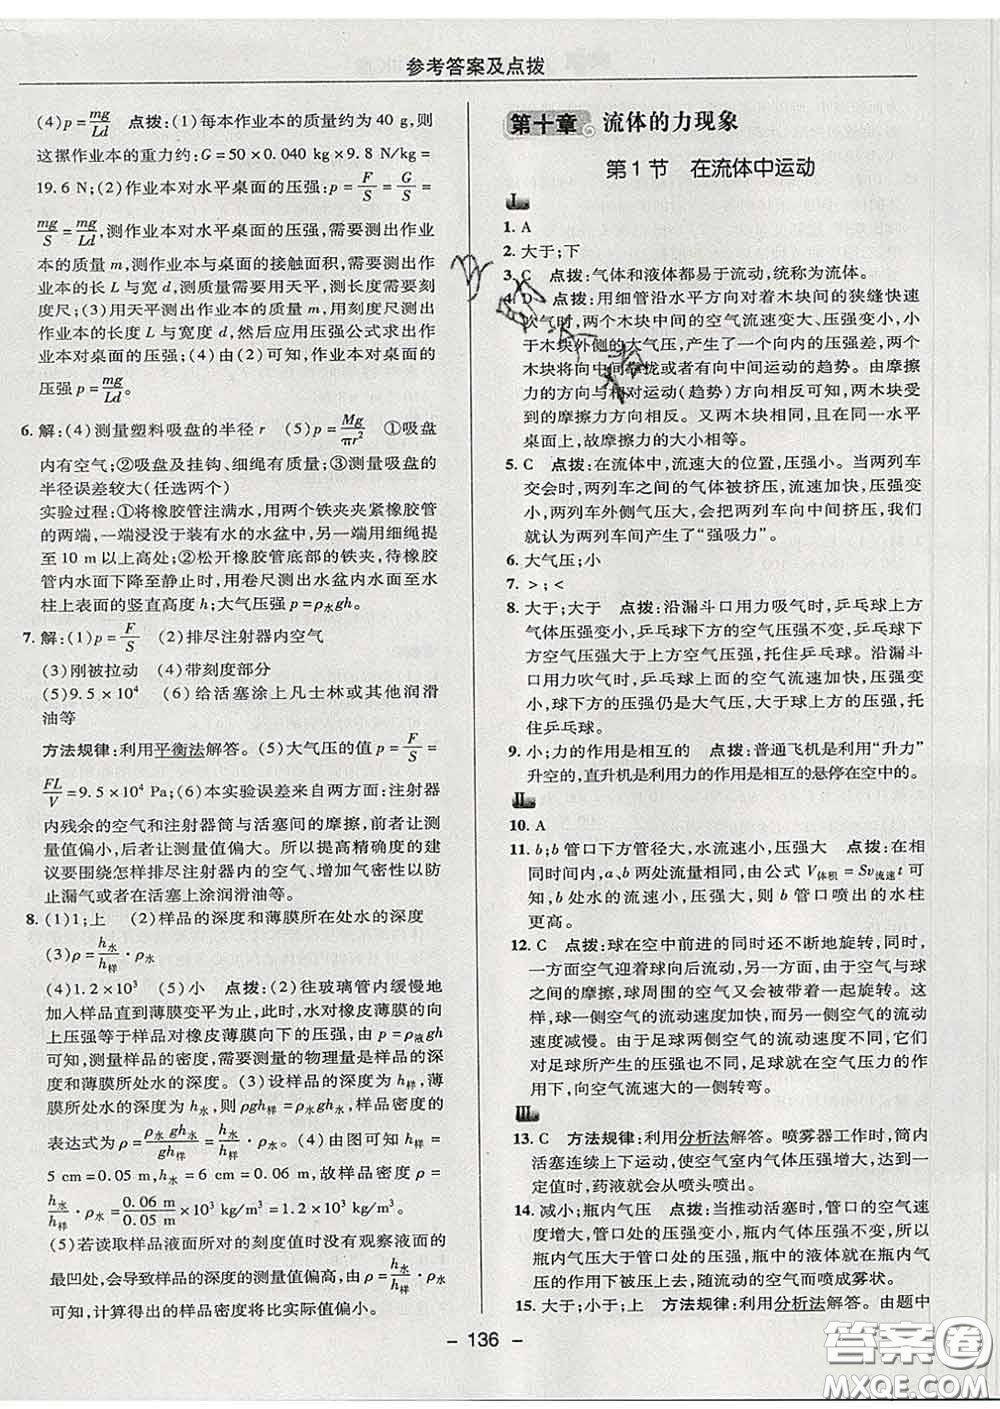 参考答案及点拨
(4)p=mg/Ld 点拨:(1)每本作业本的质量约为40 g,则
这摞作业本的重力约:G=50×0.040 kg×9.8 N/kg=
19.6 N;(2)作业本对水平桌面的压强:p=F/S=G/S=
mg/S=mg/Ld,测作业本对水平桌面的压强,需要测出作业
本的质量m,测作业本与桌面的接触面积,需要测出作
业本的长L与宽度d,测质量需要使用天平,测长度使用
刻度尺;(3)用天平测出作业本的质量m,用刻度尺测出
作业本的长度L与宽度d,然后应用压强公式求出作
业本对桌面的压强;(4)由(2)可知,作业本对桌面的
压强p=mg/Ld。
6.解:(4)测量塑料吸盘的半径r (5)p=Mg/πr² ①吸盘
内有空气;②吸盘及挂钩、细绳有质量;③测量吸盘的
半径误差较大(任选两个)
实验过程:①将橡胶管注满水,用两个铁夹夹紧橡胶管
的两端,一端浸没于装有水的水盆中,另一端用细绳提
至10 m以上高处;②松开橡胶管底部的铁夹,待橡胶
管内水面下降至静止时,用卷尺测出水盆内水面至水
柱上表面的竖直高度h;大气压强p=ρ水gh。
7.解:(1)p=F/S (2)排尽注射器内空气
(3)刚被拉动 (4)带刻度部分
(5)9.5×10⁴ (6)给活塞涂上凡士林或其他润滑
油等
方法规律:利用平衡法解答。(5)大气压的值p=F/S=
FL/V=9.5×10⁴ Pa;(6)本实验误差来自两方面:注射器
内残余的空气和注射器筒与活塞间的摩擦,前者让测
量值偏小,后者让测量值偏大。所以提高精确度的建
议要围绕怎样排尽注射器内的空气、增加气密性以防
止漏气或者在活塞上涂润滑油等。
8.(1)1;上 (2)样品的深度和薄膜所在处水的深度
(3)ρ=h水/h样·ρ水
(4)1.2×10³ (5)小 点拨:(2)往玻璃管内缓慢地
加入样品直到薄膜变平为止,此时,水对橡皮薄膜向
上压强等于样品对橡皮薄膜向下的压强,由p=ρ液gh
可知,测量样品的密度,需要测量的物理量是样品的深
度和薄膜所处水的深度。(3)设样品的深度为h样,薄
膜所处水的深度为h水,则ρgh样=ρ水gh水,样品密度的
表达式为ρ=ρ水gh水/gh样=h水/h样·ρ水。(4)由图可知h样=
5 cm=0.05 m,h水=6 cm=0.06 m,故样品密度ρ=
h水/h样·ρ水=0.06 m/0.05 m×10³ kg/m³=1.2×10³ kg/m³。
(5)若读取样品液面所对的刻度值时没有观察液面的
最凹处,会导致样品的深度的测量值偏高,由ρ=h水/h样·ρ水
可知,计算得出的样品密度将比实际值偏小。
第十章 流体的力现象
第1节 在流体中运动
Ⅰ
1. A
2.大于;下
3. C 点拨:气体和液体都易于流动,统称为流体。
4. D 点拨:用细管沿水平方向对着木块间的狭缝快速
吹气时,两个木块中间的空气流速变大、压强变小,
小于木块外侧的大气压,产生了一个向内的压强差,两个
木块将向中间靠拢或者有向中间运动的趋势。由摩擦
力的方向与相对运动(趋势)方向相反可知,两木块受
到的摩擦力方向相反。又两木块相同,且在同一水平
桌面上,故摩擦力的大小相等。
5. C 点拨:在流体中,流速大的位置,压强小。当两列车
交会时,两列车之间的气体被挤压,流速加快,压强变
小,两列车外侧气压大,会把两列车向中间挤压,我们
就认为两列车间产生了“强吸力”。
6.大气压;小
7.>;<
8.大于;大于 点拨:沿漏斗口用力吸气时,乒乓球上方
气体压强变小,乒乓球下方的空气压强不变,乒乓球下
方空气压强大于上方空气压强,托住乒乓球。沿漏斗
口用力吹气时,乒乓球上面的空气流速变大,空气压强
变小,球下方的压强仍是大气压,大于球上方的压强,托
住乒乓球。
9.小;力的作用是相互的 点拨:普通飞机是利用“升力”
升空的,直升机是利用力的作用是相互的悬停在空中的。
Ⅱ
10. A
11. b;b管口下方管径大,水流速小,压强大 点拨:在相
同时间内,a、b两处流量相同,由公式V体积=Sv流速t可
知,b处水流速小,压强大,则b管口喷出的水柱
更高。
12. C 点拨:球在空中前进的同时还不断地旋转,同时,
一方面空气迎着球向后流动,一方面,由于空气与球
之间的摩擦,球周围的空气又会被带着一起旋转。这
样,球一侧空气的流动速度加快,而另一侧空气的流
动速度减慢。由于足球两边空气的流动速度不一样,
它们对足球所产生的压强也不一样,足球就在空气压力的作
用下,向空气流速大的一侧转弯。
Ⅲ
13. C 方法规律:利用分析法解答。喷雾器工作时,筒内
活塞连续上下运动,使空气室内气体压强增大,达到
一定值时,药液就会从喷头喷出。
14.减小;瓶内气压 点拨:当推动活塞时,管口的空气流
速度增大,管口处的压强变小,瓶内气体压强不变,所以
瓶内气压大于管口处的压强,瓶中的液体就在瓶内气
压的作用下被压上去,随流动的空气而形成雾状。
15.大于;小于;上 方法规律:利用分析法解答。由题中
- 136 -
答案圈
MXQE.COM